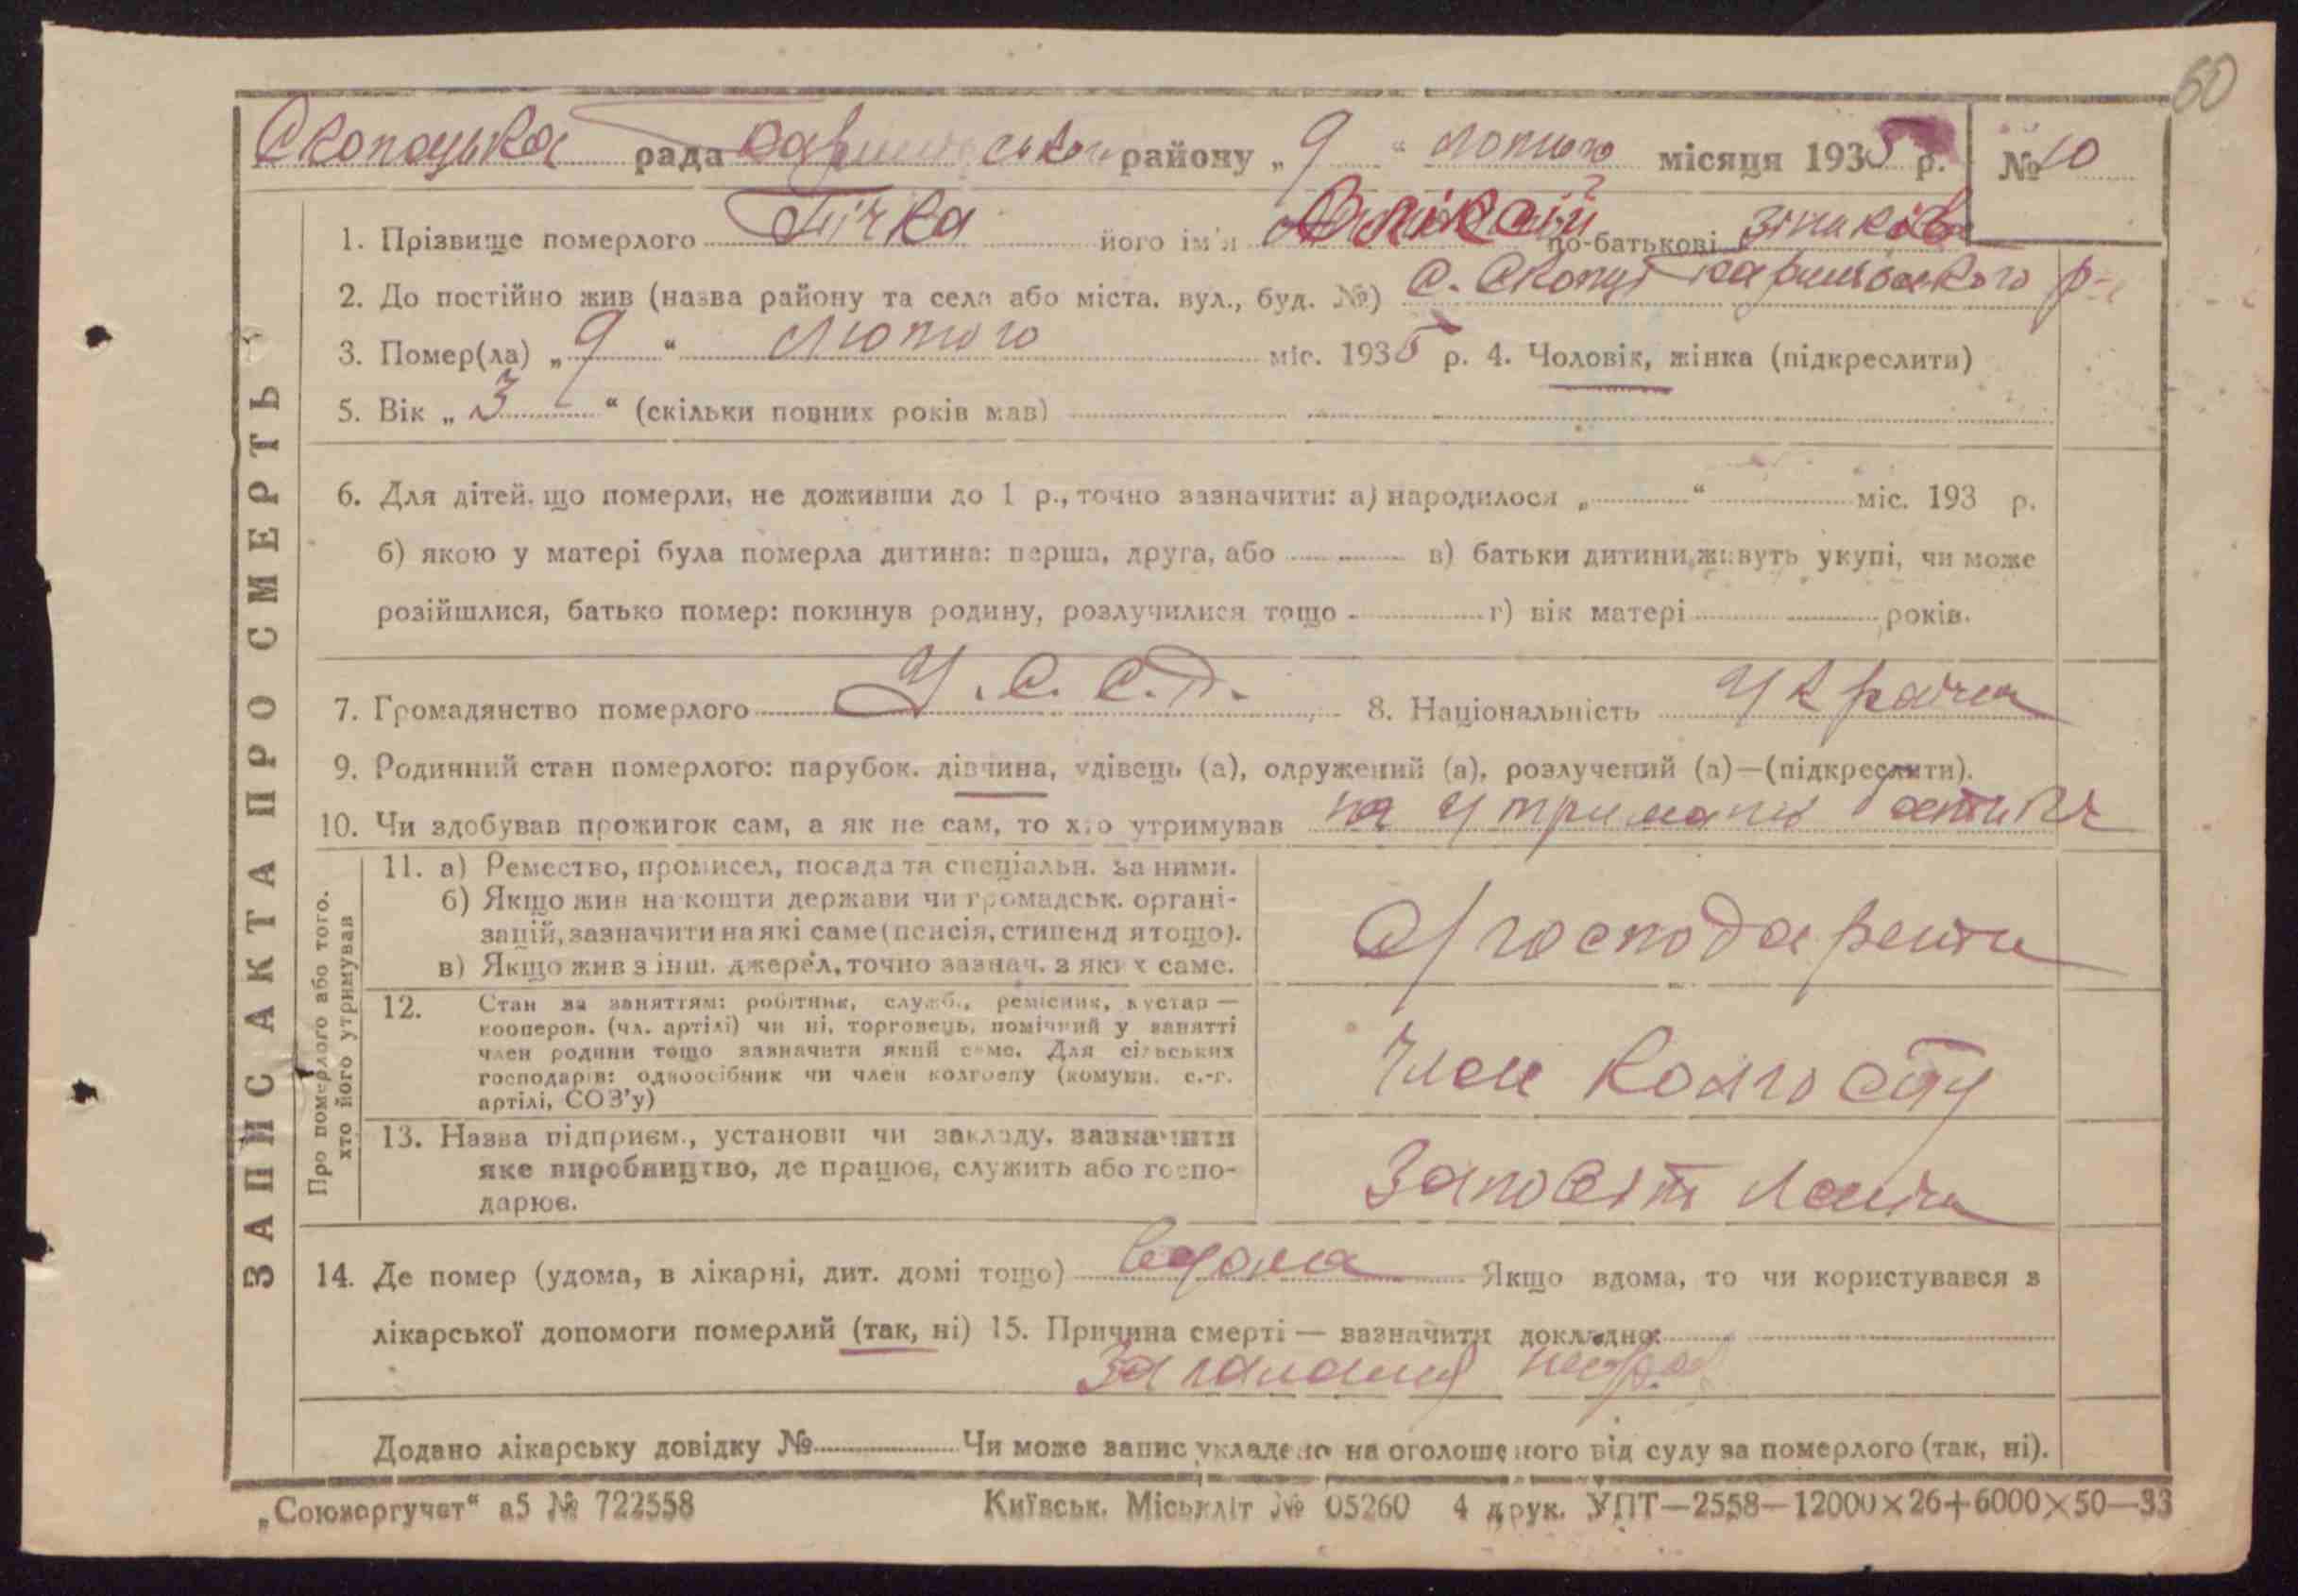 60
Скопацька рада Баришевського району „ 9 “ лютого місяця 1935 р. № 10
1. Прізвище померлого Пічка його ім'я по-батькові
2. До постійно жив (назва району та села або міста, вул., буд. №) С. Скопці Баришівського р-
3. Помер(ла) „ 9 “ Лютого міс. 1935 р. 4. Чоловік, жінка (підкреслити)
5. Вік „ 3 “ (скільки повних років мав)
6. Для дітей, що померли, не доживши до 1 р., точно зазначити: а) народилося „ “ міс. 193 р.
б) якою у матері була померла дитина: перша, друга, або в) батьки дитини живуть укупі, чи може
розійшлися, батько помер: покинув родину, розлучилися тощо г) вік матері років.
7. Громадянство померлого У.С.С.Р. 8. Національність
9. Родинний стан померлого: парубок, дівчина, удівець (а), одружений (а), розлучений (а)—(підкреслити).
10. Чи здобував прожиток сам, а як не сам, то хто утримував на утримані
ЗАПИС АКТА ПРО СМЕРТЬ
Про померлого або того,
хто його утримував
11. а) Ремество, промисел, посада та спеціальн. за ними.
б) Якщо жив на кошти держави чи громадськ. органі-
зацій, зазначити на які саме (пенсія, стипенд я тощо).
в) Якщо жив з інш. джерел, точно зазнач. з яких саме.
12. Стан за заняттям: робітник, служб., ремісник, кустар —
кооперов. (чл. артілі) чи ні, торговець, помічний у занятті
член родини тощо зазначити який саме. Для сільських
господарів: одноосібник чи член колгоспу (комуни, с.-г.
артілі, СОЗ'у)
Член Колгоспу
13. Назва підприєм., установи чи закладу, зазначити
яке виробництво, де працює, служить або госпо-
дарює.
Заповіт Леніна
14. Де помер (удома, в лікарні, дит. домі тощо) вдома Якщо вдома, то чи користувався з
лікарської допомоги померлий (так, ні) 15. Причина смерті — зазначити докладно:
Запалення
Додано лікарську довідку № Чи може запис укладено на оголошеного від суду за померлого (так, ні).
„Союзоргучет“ а5 № 722558 Київськ. Міськліт № 05260 4 друк. УПТ—2558—12000×26+6000×50—33